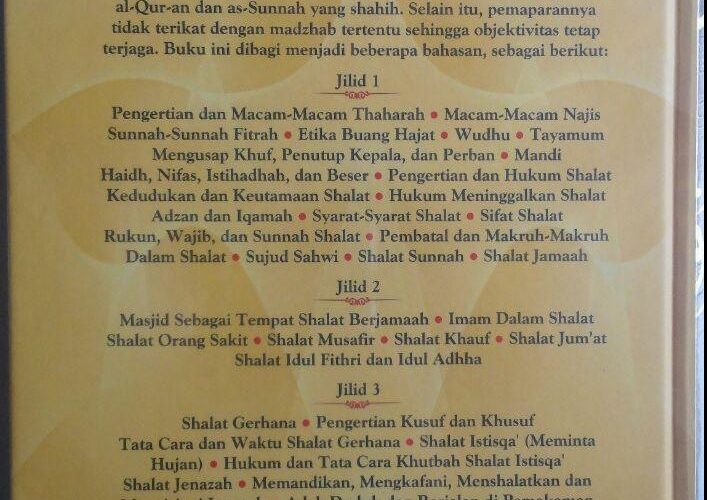 al-Qur-an dan as-Sunnah yang shahih. Selain itu, pemaparannya
tidak terikat dengan madzhab tertentu sehingga objektivitas tetap
terjaga. Buku ini dibagi menjadi beberapa bahasan, sebagai berikut:
Jilid 1
Pengertian dan Macam-Macam Thaharah • Macam-Macam Najis
Sunnah-Sunnah Fitrah • Etika Buang Hajat • Wudhu • Tayamum
Mengusap Khuf, Penutup Kepala, dan Perban • Mandi
Haidh, Nifas, Istihadhah, dan Beser • Pengertian dan Hukum Shalat
Kedudukan dan Keutamaan Shalat • Hukum Meninggalkan Shalat
Adzan dan Iqamah • Syarat-Syarat Shalat • Sifat Shalat
Rukun, Wajib, dan Sunnah Shalat • Pembatal dan Makruh-Makruh
Dalam Shalat • Sujud Sahwi • Shalat Sunnah • Shalat Jamaah
Jilid 2
Masjid Sebagai Tempat Shalat Berjamaah • Imam Dalam Shalat
Shalat Orang Sakit • Shalat Musafir • Shalat Khauf • Shalat Jum'at
Shalat Idul Fithri dan Idul Adhha
Jilid 3
Shalat Gerhana • Pengertian Kusuf dan Khusuf
Tata Cara dan Waktu Shalat Gerhana • Shalat Istisqa' (Meminta
Hujan) • Hukum dan Tata Cara Khutbah Shalat Istisqa'
Shalat Jenazah • Memandikan, Mengkafani, Menshalatkan dan